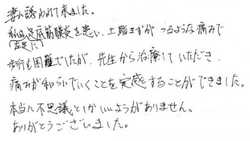 妻に誘われて来ました。
私は足底筋膜炎を患い、土踏まずがつるような痛みで
(両足に)
歩行も困難でしたが、先生から治療していただき、
痛みが和らいでいくことを実感することができました。
本当に不思議としかいいようがありません。
ありがとうございました。